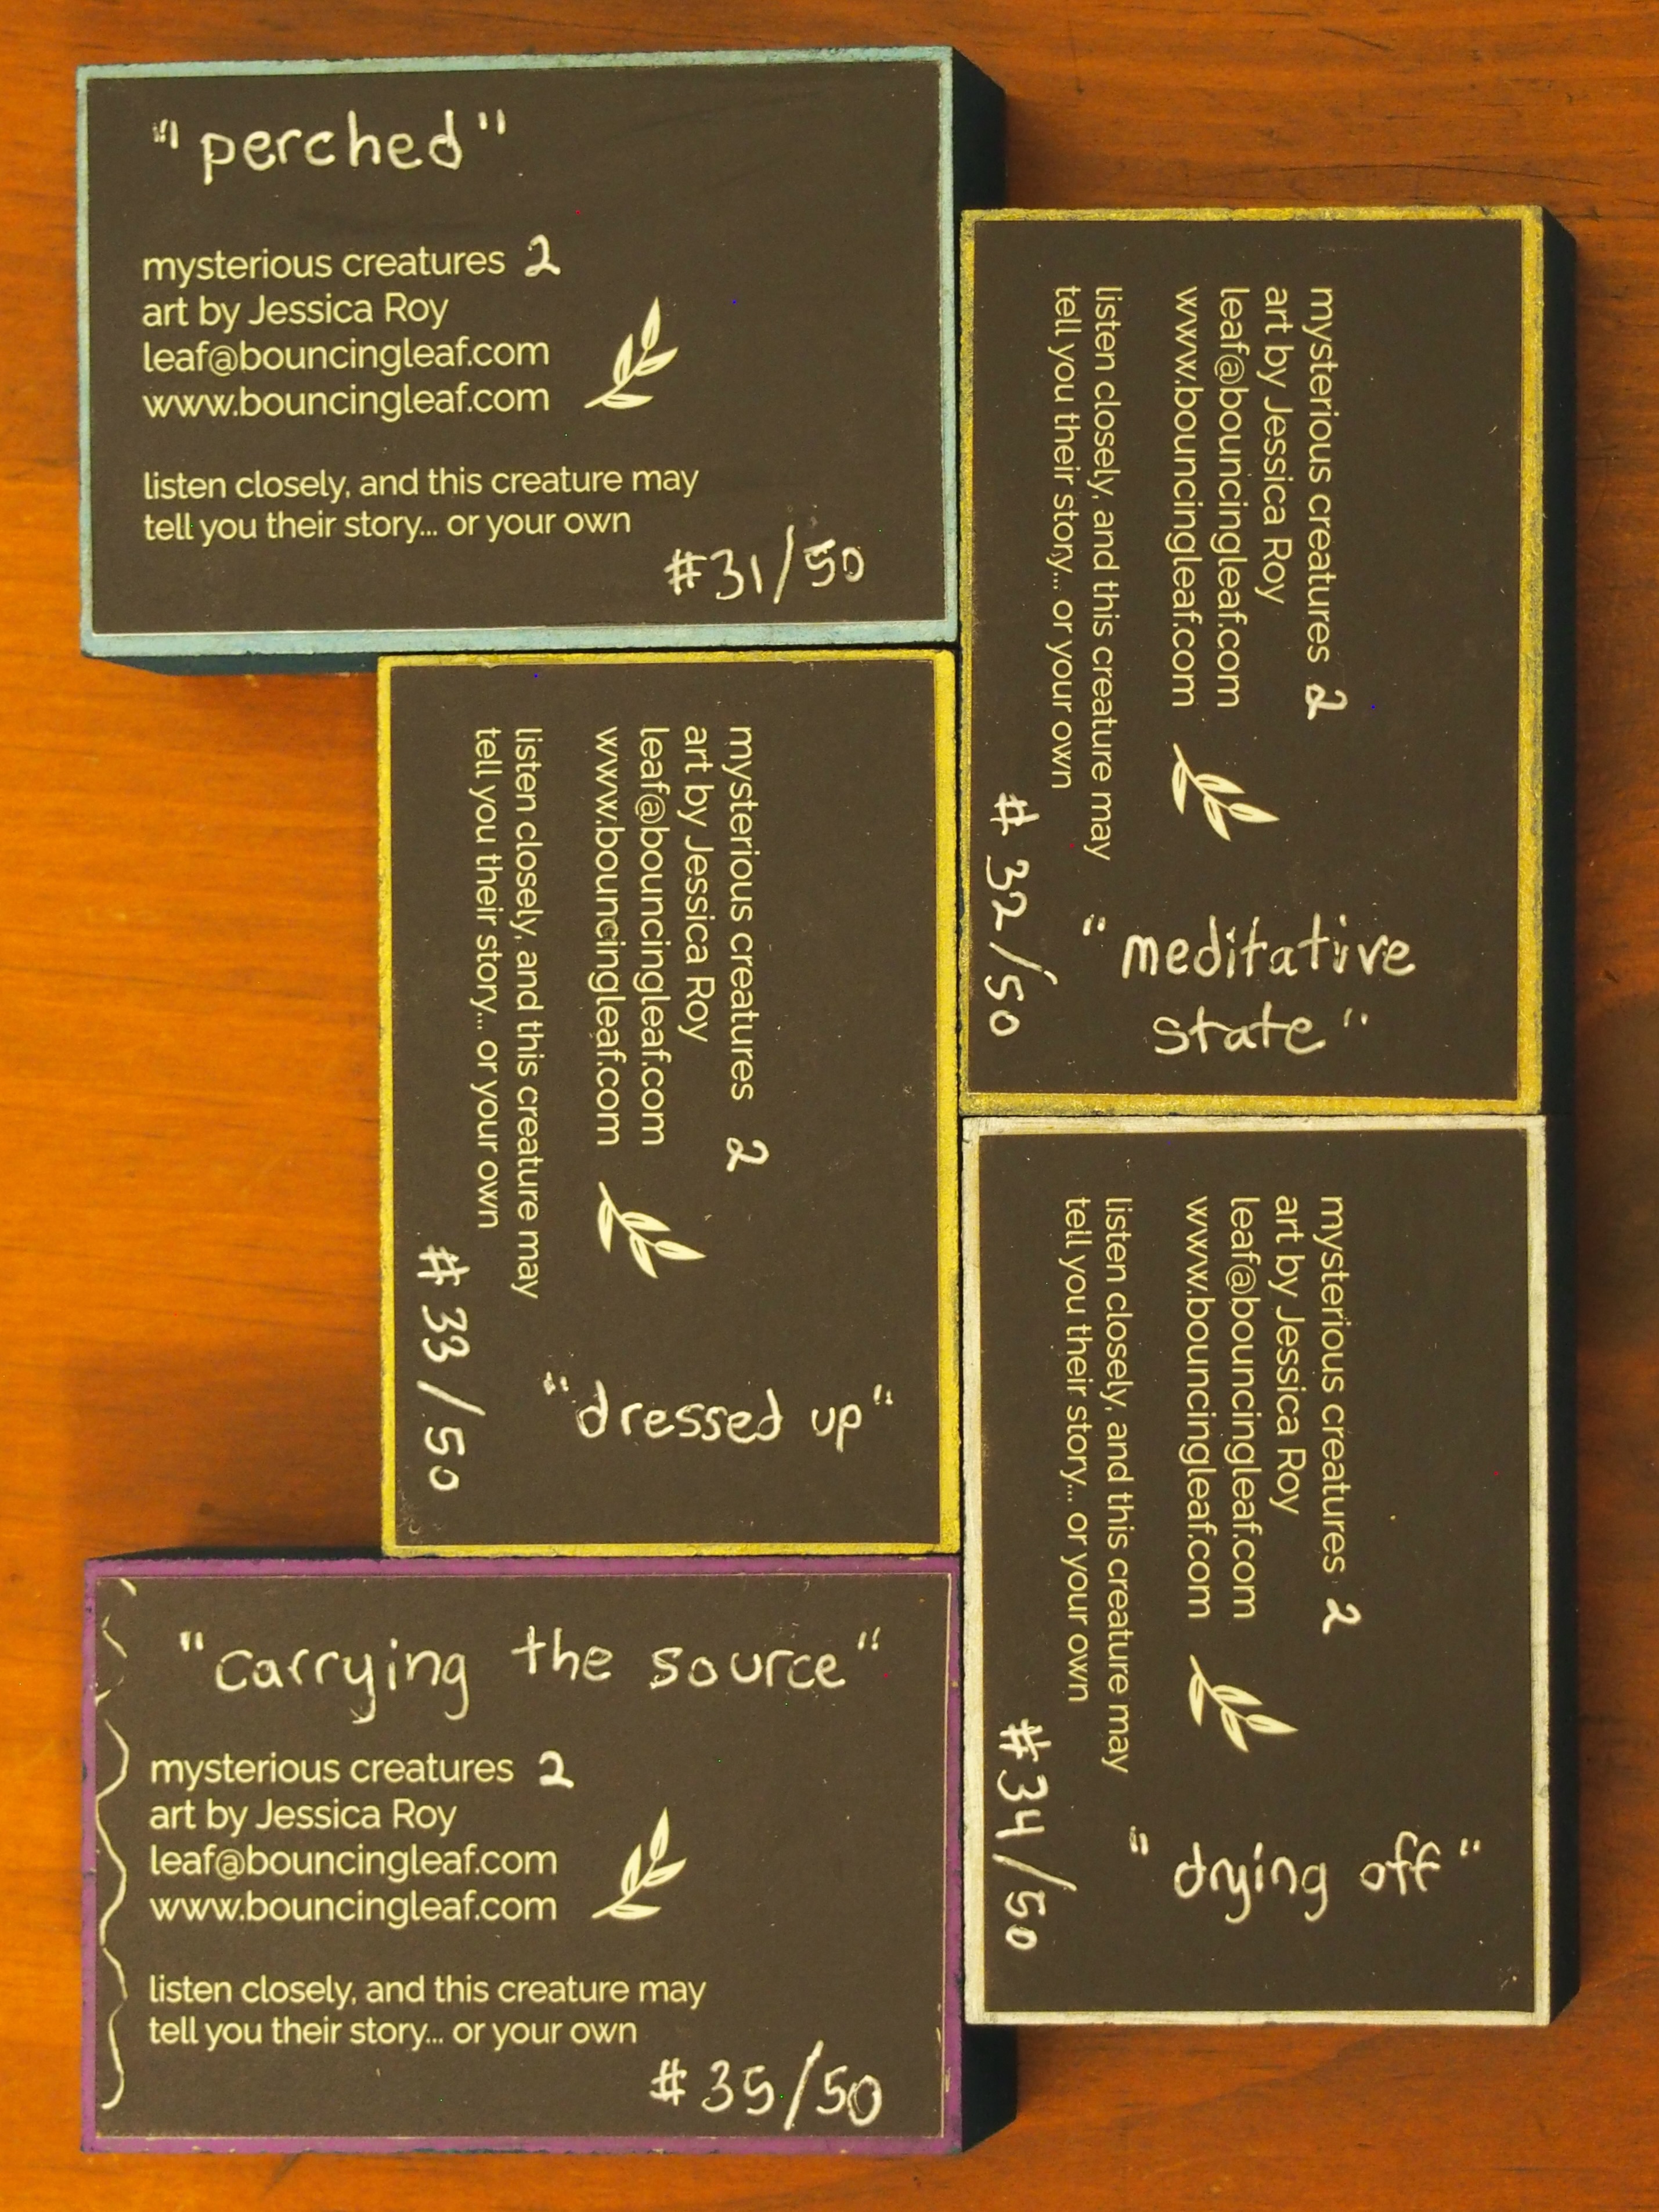 "perched"
mysterious creatures 2
art by Jessica Roy
leaf@bouncingleaf.com
www.bouncingleaf.com
listen closely, and this creature may
tell you their story... or your own
#31/50
mysterious creatures 2
art by Jessica Roy
leaf@bouncingleaf.com
www.bouncingleaf.com
listen closely, and this creature may
tell you their story... or your own
#32/50
"meditative
state"
mysterious creatures 2
art by Jessica Roy
leaf@bouncingleaf.com
www.bouncingleaf.com
listen closely, and this creature may
tell you their story... or your own
#33/50
"dressed up"
mysterious creatures 2
art by Jessica Roy
leaf@bouncingleaf.com
www.bouncingleaf.com
listen closely, and this creature may
tell you their story... or your own
#34/50
"drying off"
"carrying the source"
mysterious creatures 2
art by Jessica Roy
leaf@bouncingleaf.com
www.bouncingleaf.com
listen closely, and this creature may
tell you their story... or your own
#35/50